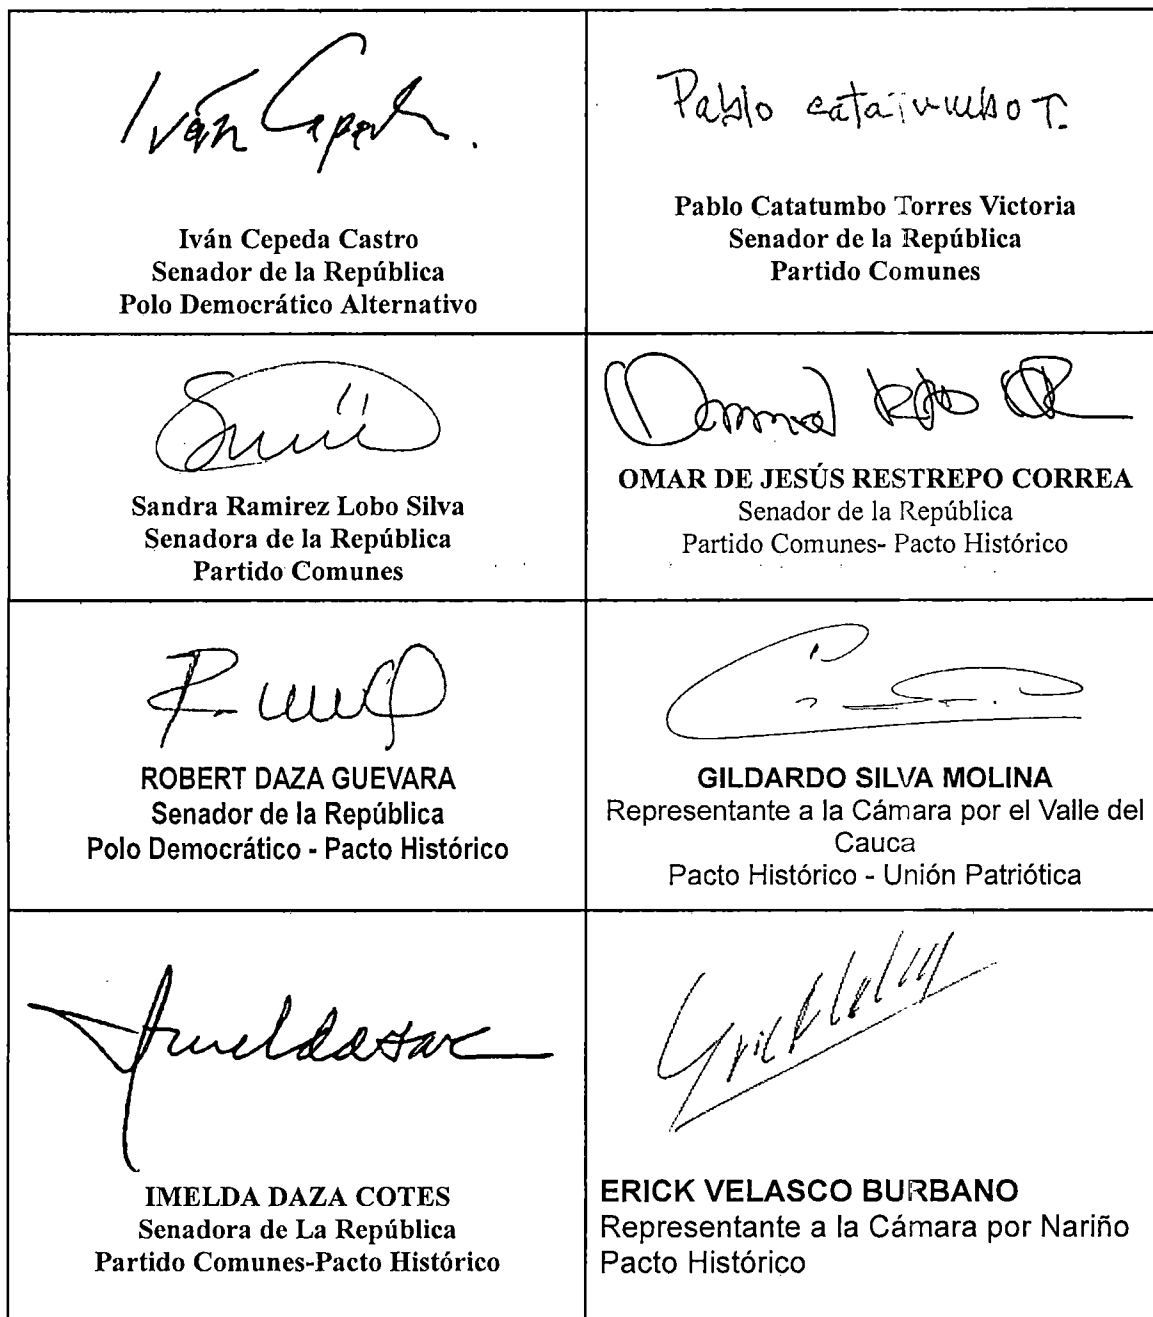 Iván Cepeda.
Iván Cepeda Castro
Senador de la República
Polo Democrático Alternativo
Pablo catatumbo T.
Pablo Catatumbo Torres Victoria
Senador de la República
Partido Comunes
Sandra Ramirez Lobo Silva
Senadora de la República
Partido Comunes
OMAR DE JESÚS RESTREPO CORREA
Senador de la República
Partido Comunes- Pacto Histórico
ROBERT DAZA GUEVARA
Senador de la República
Polo Democrático - Pacto Histórico
GILDARDO SILVA MOLINA
Representante a la Cámara por el Valle del
Cauca
Pacto Histórico - Unión Patriótica
Imeldadazac
IMELDA DAZA COTES
Senadora de La República
Partido Comunes-Pacto Histórico
ERICK VELASCO BURBANO
Representante a la Cámara por Nariño
Pacto Histórico